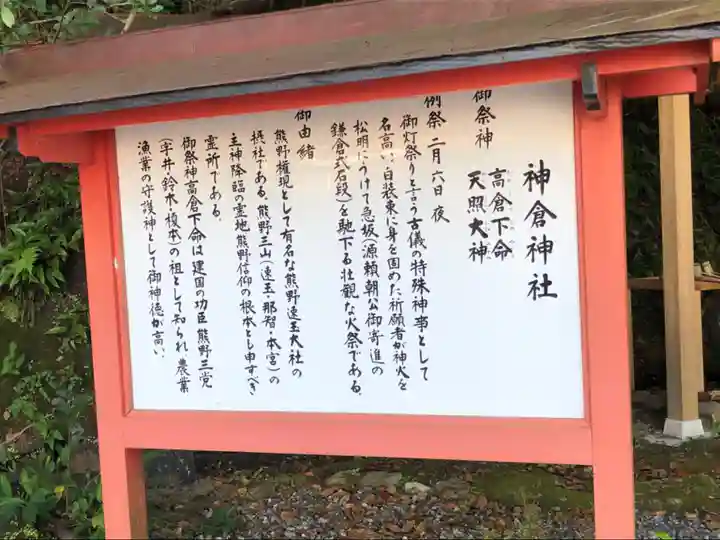 神倉神社
御祭神
高倉下命
天照大神
例祭 二月六日 夜
御灯祭りと言う古儀の特殊神事として
名高い、白装束に身を固めた祈願者が神火を
松明にうけて急坂(源頼朝公御寄進の
鎌倉式石段)を馳下る壮観な火祭である。
御由緒
熊野権現として有名な熊野速玉大社の
摂社である。熊野三山(速玉・那智・本宮)の
主神降臨の霊地熊野信仰の根本とも申すべき
霊所である。
御祭神高倉下命は建国の功臣熊野三党
(宇井・鈴木・榎本)の祖として知られ農業
漁業の守護神として御神徳が高い、